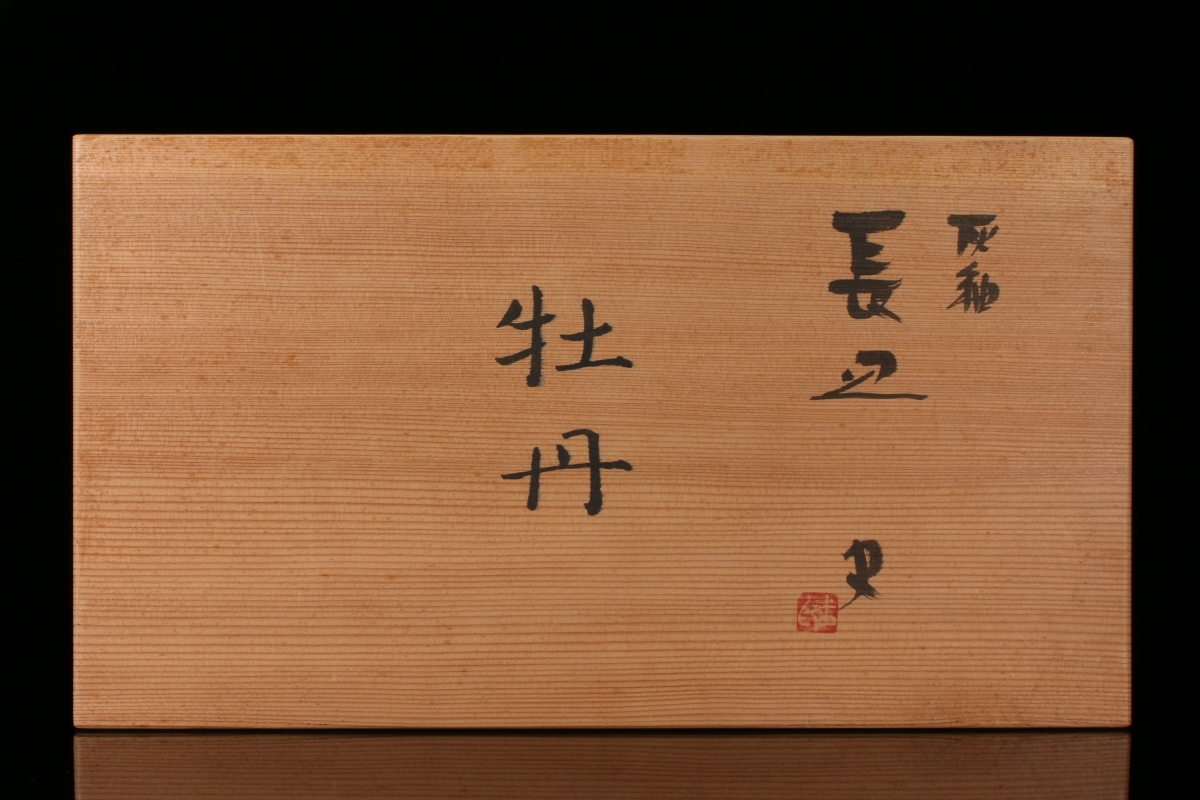 灰釉
長皿
史
牡丹